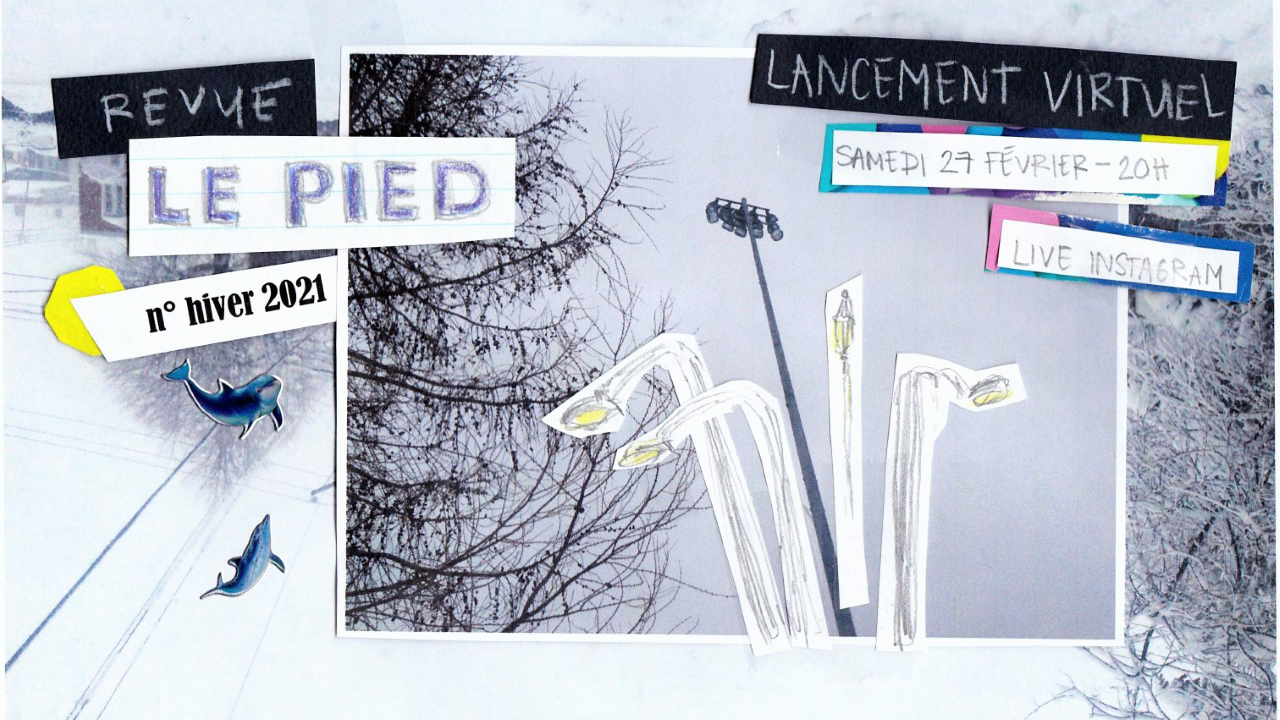 REVUE
LE PIED
n° hiver 2021
LANCEMENT VIRTUEL
SAMEDI 27 FÉVRIER - 20H
LIVE INSTAGRAM